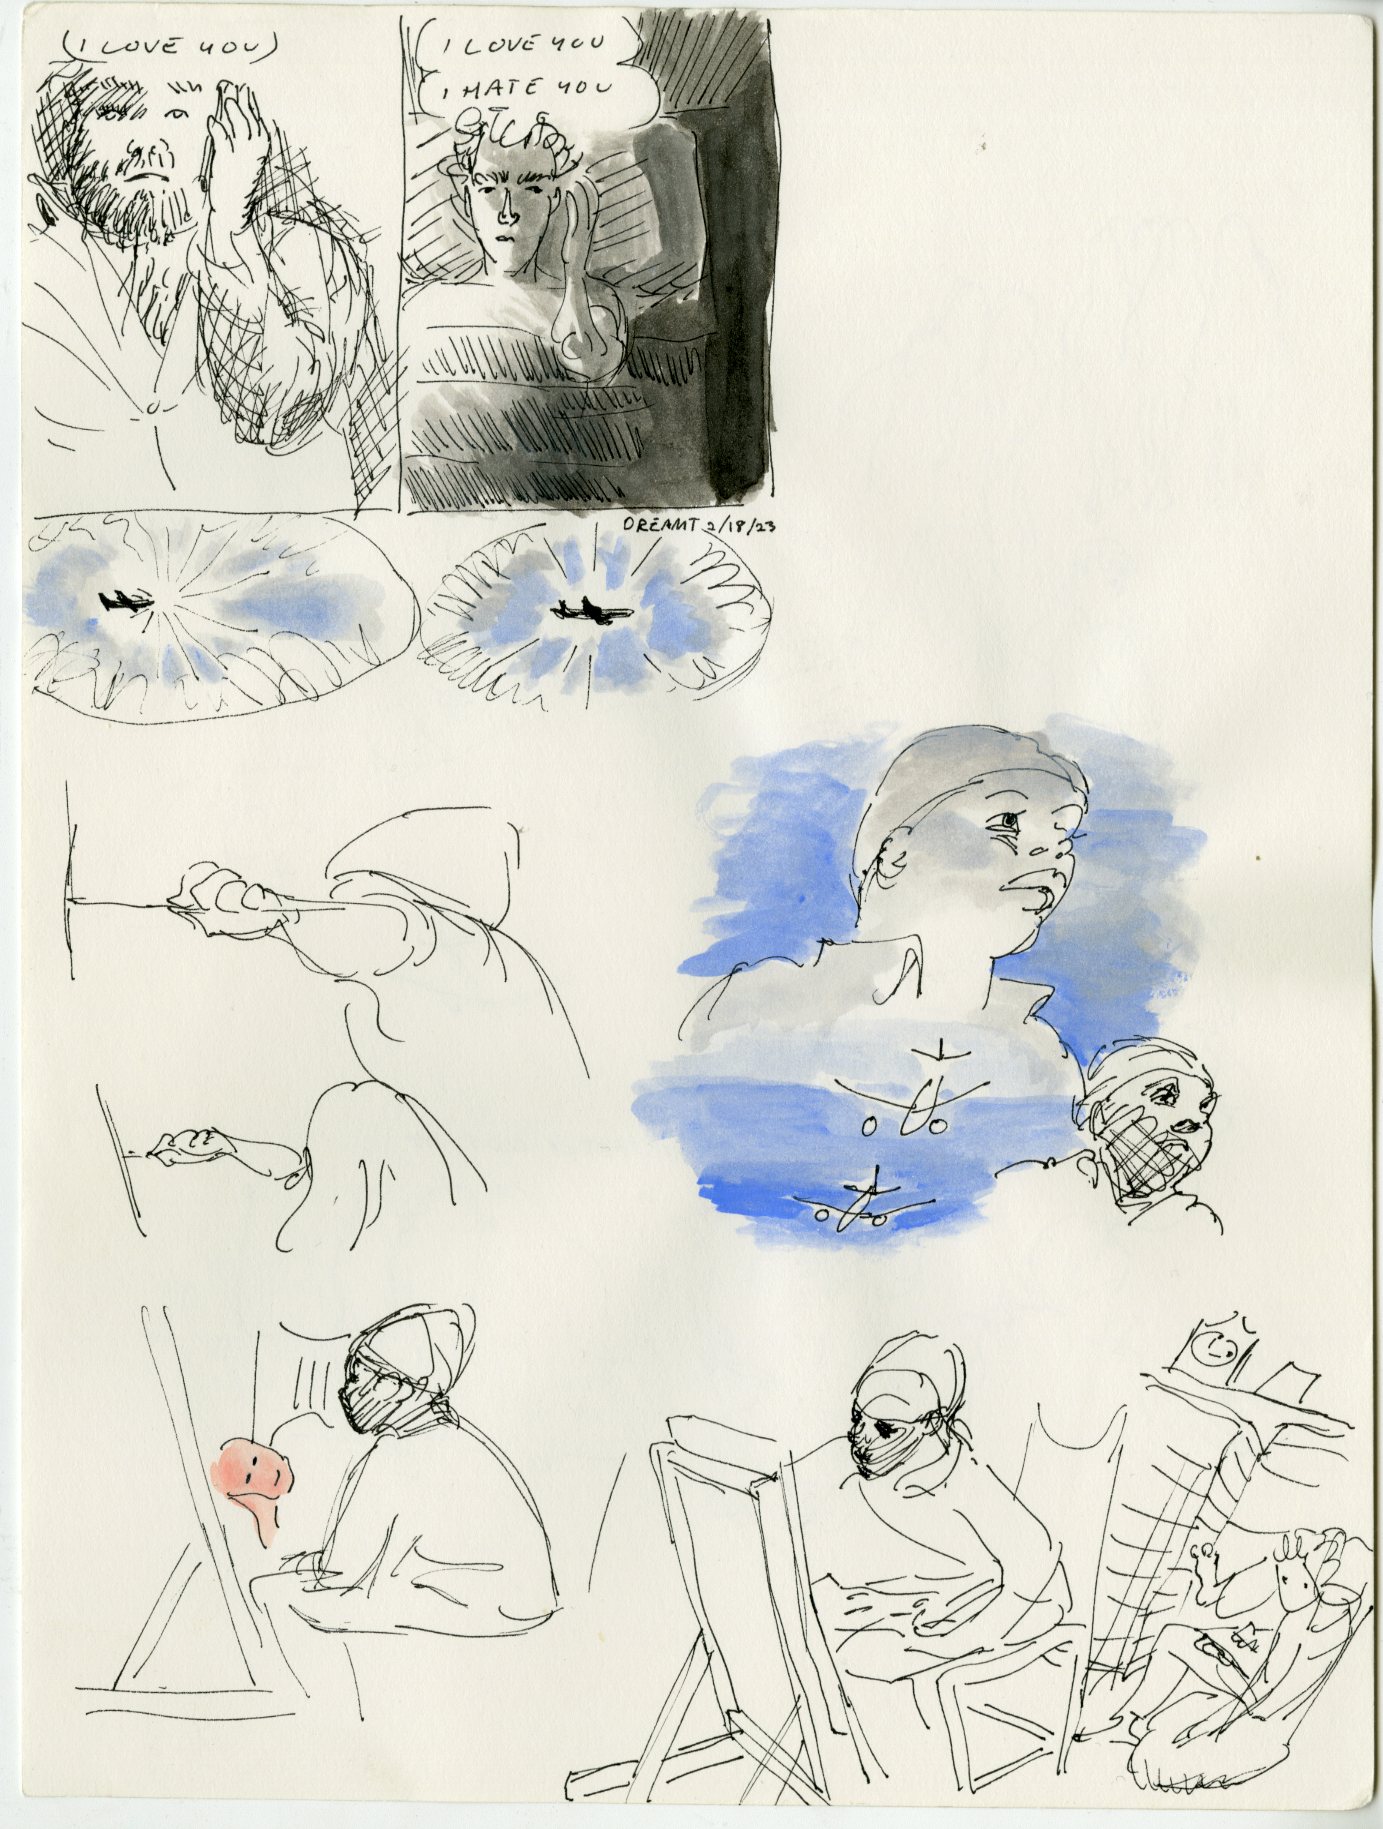 (I LOVE YOU)
I LOVE YOU
I HATE YOU
DREAMT 2/18/23